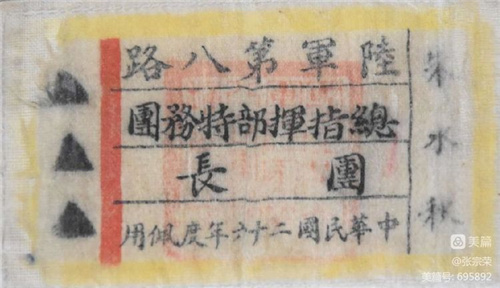 陸軍第八路
總指揮部特務團
團長
中華民國二十六年度佩用
水秋
美篇
@张宗荣
美篇号: 695892